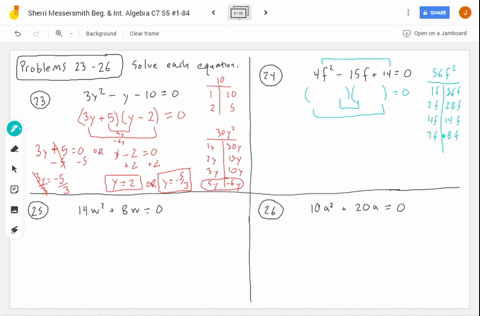 Sherri Messersmith Beg. & Int. Algebra C7 S5 #1-84
SHARE
J
Background
Clear frame
Open on a Jamboard
Problems 23-26
Solve each equation.
23
3y² - y - 10 = 0
(3y + 5)(y - 2) = 0
5y
-6y
3y + 5 = 0 OR y - 2 = 0
-5 -5 +2 +2
3y = -5
3 3
y = 2 OR y = -5/3
10
1 | 10
2 | 5
30y²
1y | 30y
2y | 15y
3y | 10y
5y | -6y
24
4f² - 15f + 14 = 0
( )( ) = 0
56f²
1f | 56f
2f | 28f
4f | 14f
7f | 8f
25
14w² + 8w = 0
26
10a² + 20a = 0